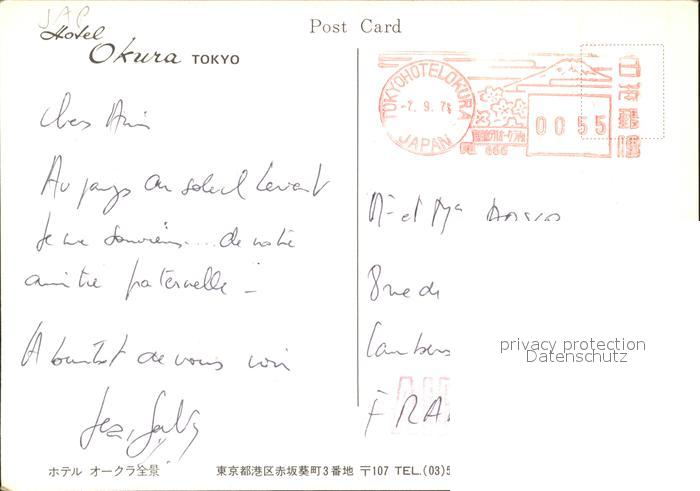 JAP
Hotel
Okura TOKYO
Post Card
TOKYO HOTEL OKURA
-7. 9. 78
JAPAN
0055
日本郵便
666
Chers Amis
Au pays du soleil levant
Je me souviens.... de notre
amitié fraternelle -
A bientôt de vous voir
M. et Mme
8 rue de
FRA
privacy protection
Datenschutz
ホテル オークラ全景
東京都港区赤坂葵町3番地 〒107 TEL.(03)5